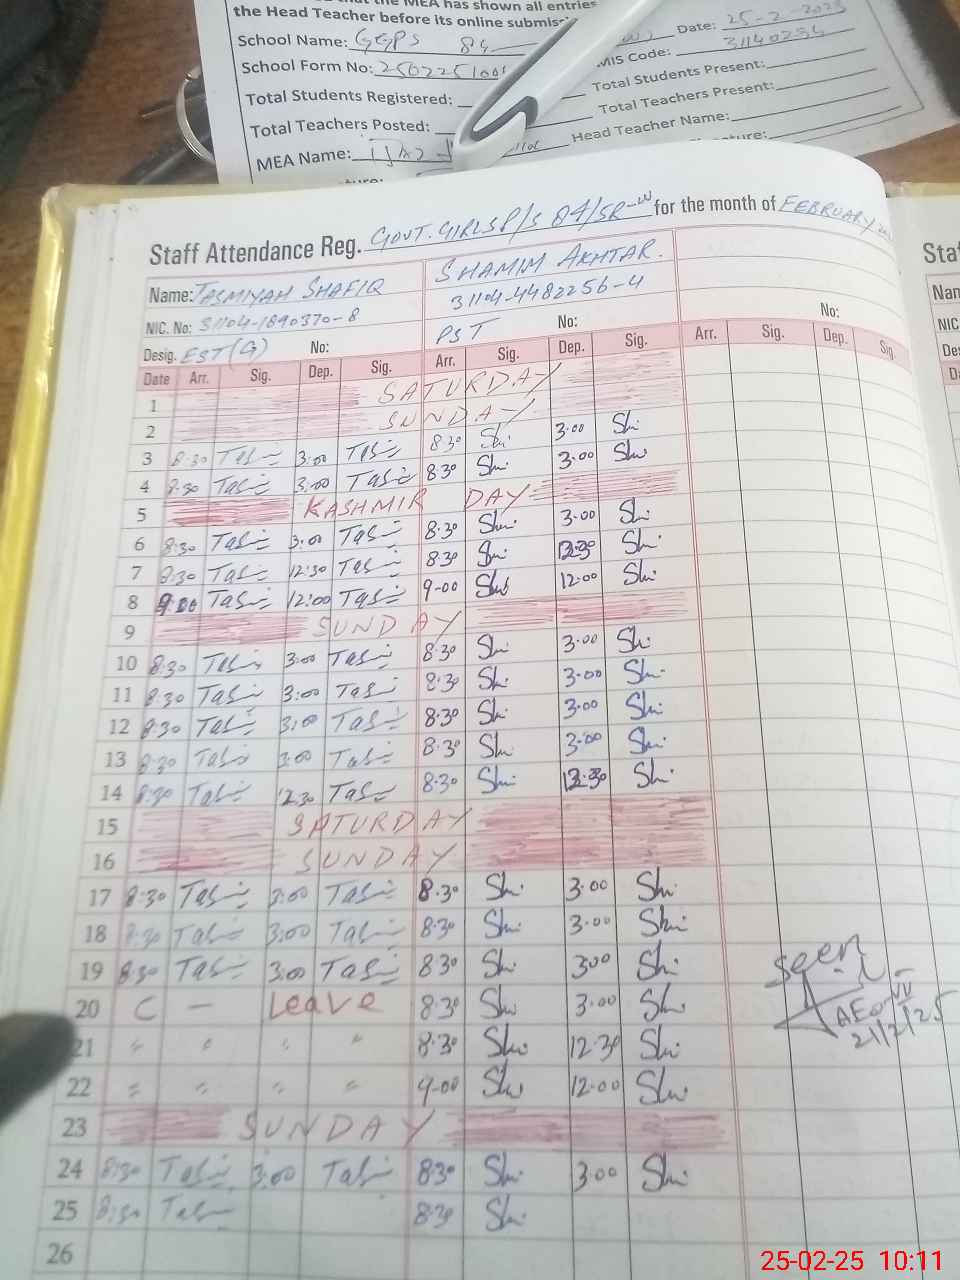 that the MEA has shown all entries
the Head Teacher before its online submiss
School Name: GGPS 84
Date: 25-2-2025
School Form No: 2502251001
MIS Code: 31140234
Total Students Registered:
Total Students Present:
Total Teachers Posted:
Total Teachers Present:
MEA Name:
Head Teacher Name:
Staff Attendance Reg. GOVT. GIRLS P/S 84/5R-W for the month of FEBRUARY
Name: TASMIYAH SHAFIQ SHAMIM AKHTAR.
NIC. No: 31104-1890370-8 31104-4482256-4
Desig. EST(G) No: PST No: No:
Date Arr. Sig. Dep. Sig. Arr. Sig. Dep. Sig. Arr. Sig. Dep. Sig.
1 SATURDAY
2 SUNDAY
3 8:30 Tas 3:00 Tas 8:30 Sh 3.00 Sh
4 8:30 Tas 3:00 Tas 8:30 Sh 3.00 Sh
5 KASHMIR DAY
6 8:30 Tas 3:00 Tas 8:30 Sh 3.00 Sh
7 8:30 Tas 12:30 Tas 8:30 Sh 12:30 Sh
8 9:00 Tas 12:00 Tas 9-00 Sh 12:00 Sh
9 SUNDAY
10 8:30 Tas 3:00 Tas 8:30 Sh 3.00 Sh
11 8:30 Tas 3:00 Tas 8:30 Sh 3.00 Sh
12 8:30 Tas 3:00 Tas 8:30 Sh 3.00 Sh
13 8:30 Tas 3:00 Tas 8:30 Sh 3.00 Sh
14 8:30 Tas 12:30 Tas 8:30 Sh 12:30 Sh
15 SATURDAY
16 SUNDAY
17 8:30 Tas 3:00 Tas 8.30 Sh 3.00 Sh
18 8:30 Tas 3:00 Tas 8:30 Sh 3.00 Sh
19 8:30 Tas 3:00 Tas 8:30 Sh 3.00 Sh
20 C - Leave 8:30 Sh 3.00 Sh
21 " " " " 8:30 Sh 12:30 Sh
22 " " " " 9-00 Sh 12:00 Sh
23 SUNDAY
24 8:30 Tas 3:00 Tas 8:30 Sh 3.00 Sh
25 8:30 Tas 8:30 Sh
26
Seen
AEO
21/2/25
Sta
Nam
NIC
Des
25-02-25 10:11